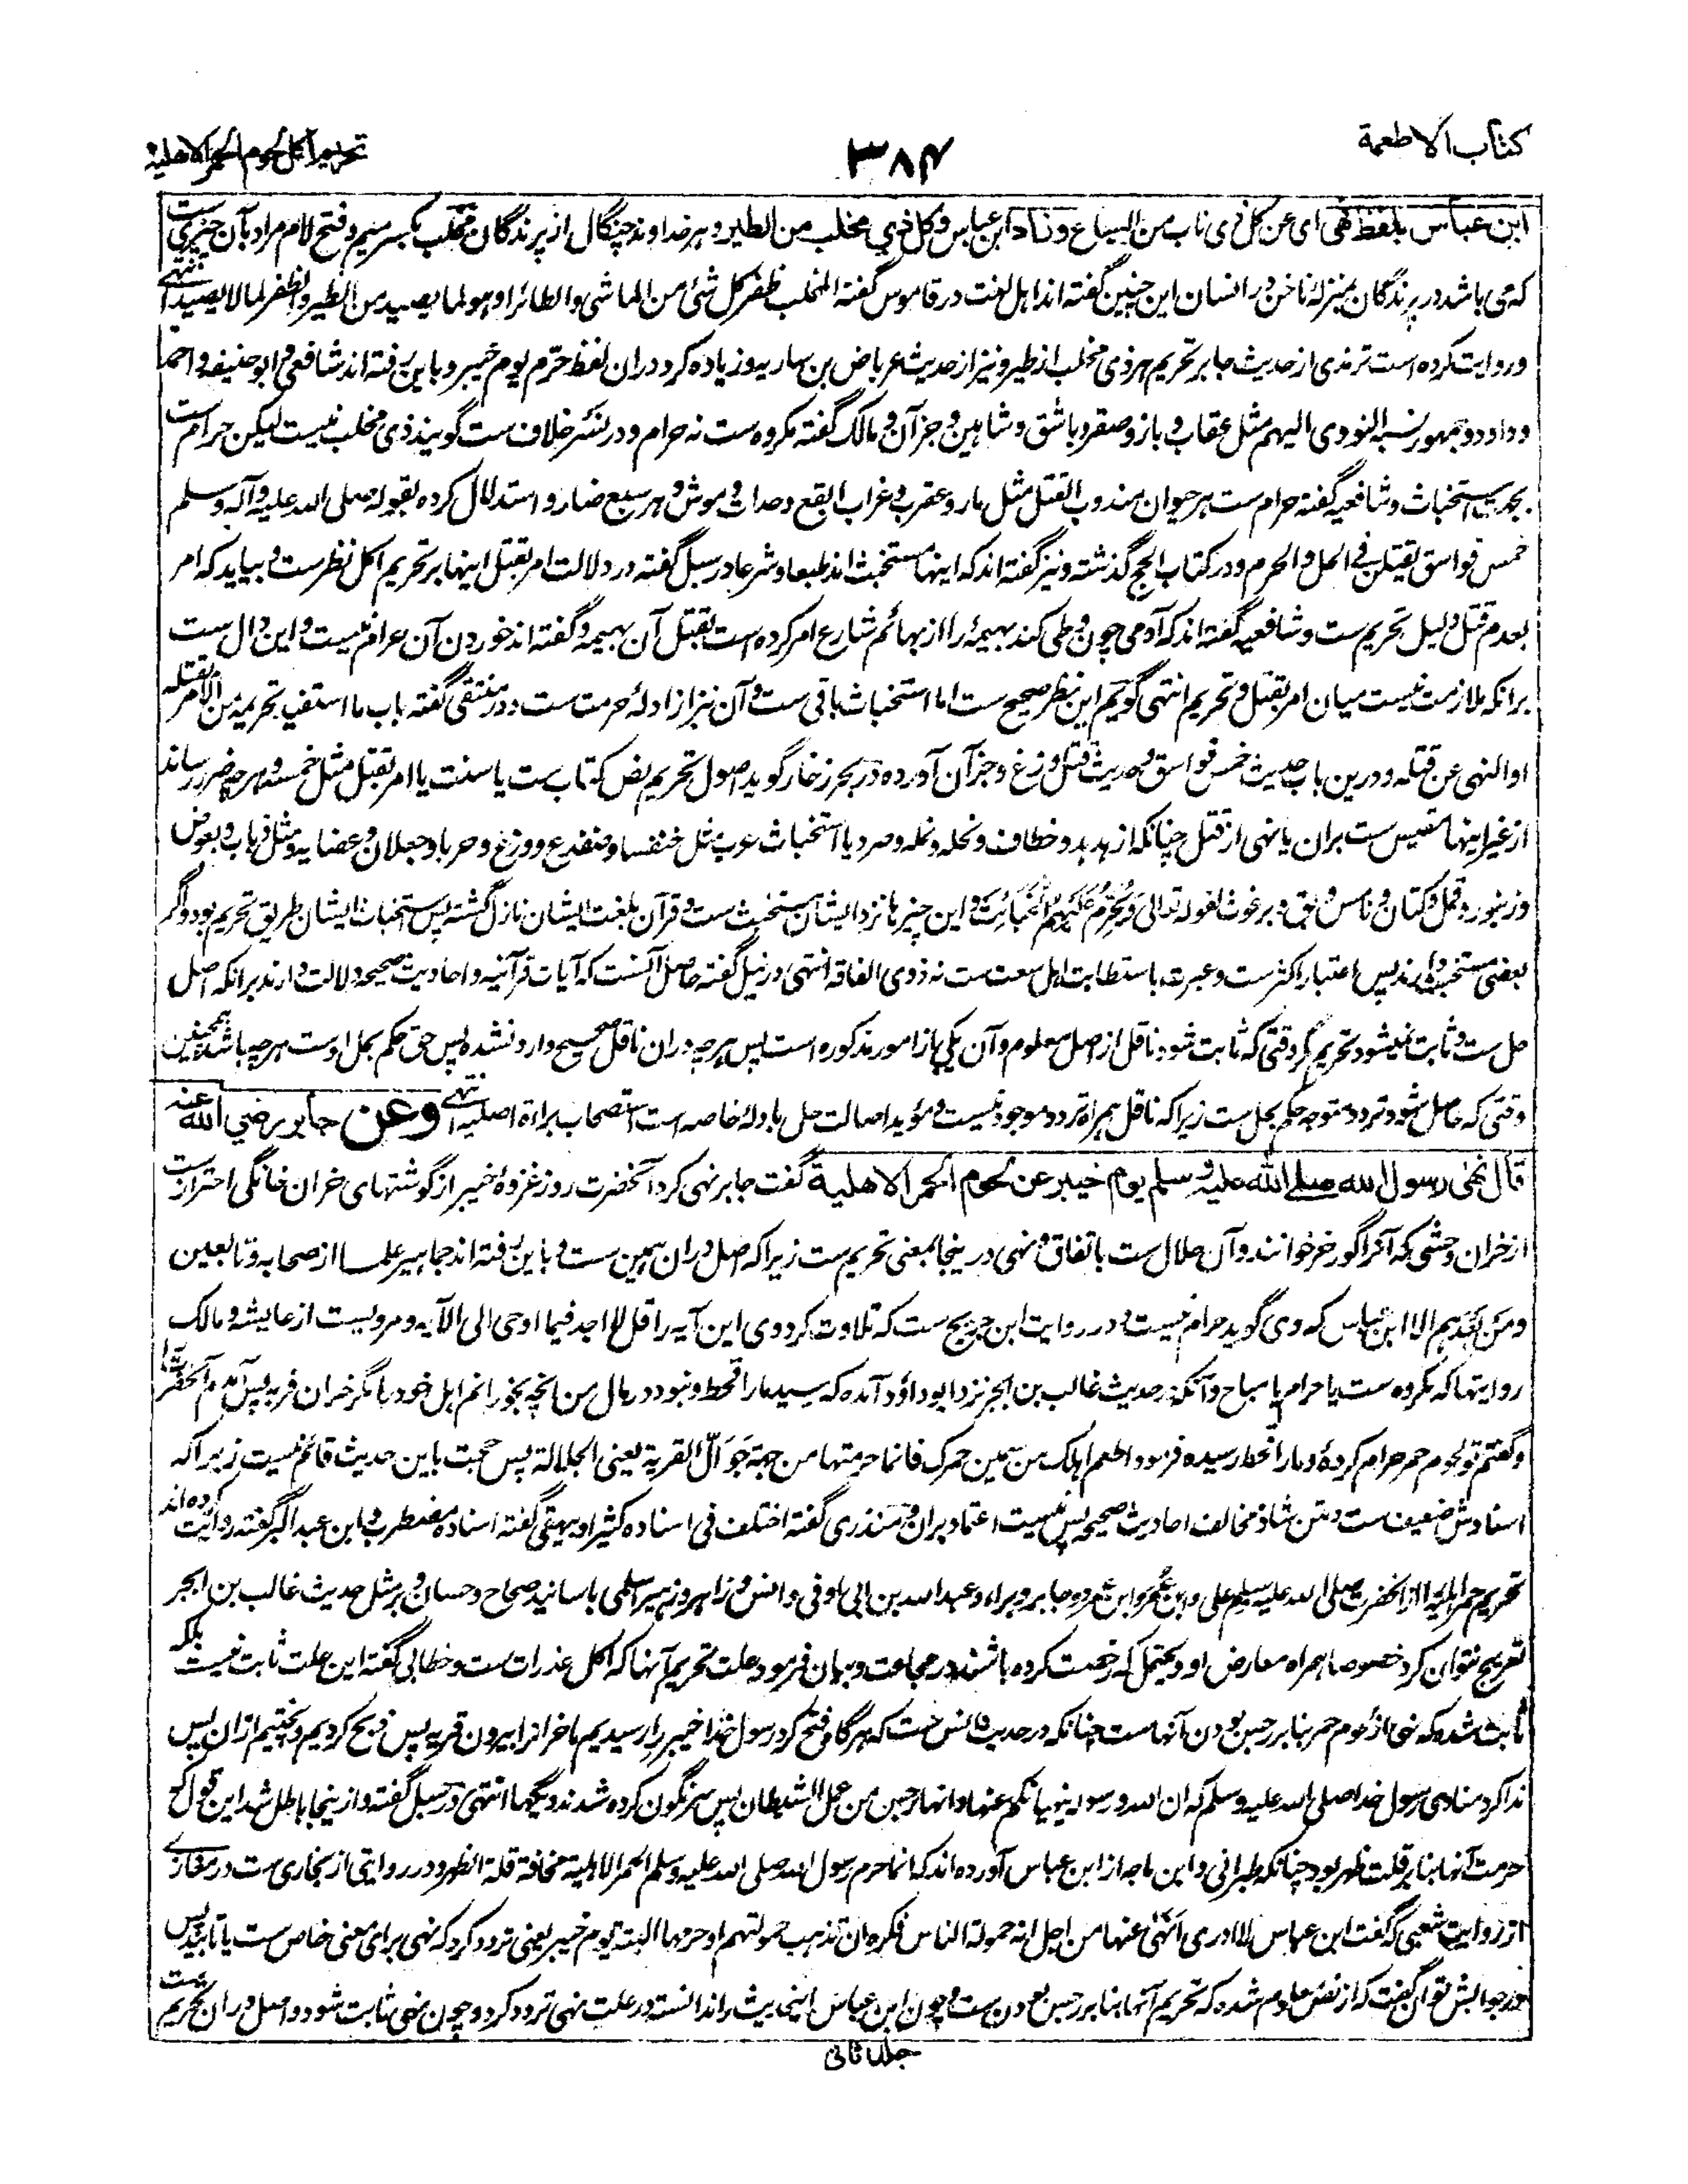 کتاب الاطعمة
۳۸۴
تحریم اکل لحوم الحمر الاهلیة
ابن عباس بلفظ نهی ای عن کل ذی ناب من السباع وزاد ابن عباس وکل ذی مخلب من الطیر و هر خداوند چنگال از پرندگان مخلب بکسر میم و فتح لام مراد بآن چیزی ست
که می باشد در پرندگان بمنزلهٔ ناخن در انسان این چنین گفته اند اهل لغت در قاموس گفته المخلب ظفر کل شئ من الماشی والطائر او هو لما یصید من الطیر والظفر لما لا یصید انتهی
و روایت کرده است ترمذی از حدیث جابر تحریم هر ذی مخلب از طیر و نیز از حدیث عرباض بن ساریه و زیاده کرد دران لفظ حرّم یوم خیبر و باین رفته اند شافعی و ابو حنیفه و احمد
و داود و جمهور نسبه النووی الیهم مثل عقاب و باز و صقر و باشق و شاهین و جز آن و مالک گفته مکروه ست نه حرام و در نسر خلاف ست گویند ذی مخلب نیست لیکن حرام ست
بجهت استخباث و شافعیه گفته حرام ست هر حیوان مندوب القتل مثل مار و عقرب و غراب ابقع و حداة و موش و هر سبع ضار و استدلال کرده بقوله صلی الله علیه وآله وسلم
خمس فواسق یقتلن فی الحل والحرم و در کتاب الحج گذشته و نیز گفته اند که اینها مستخبث اند طبعا و شرعا در سبل گفته در دلالت امر بقتل اینها بر تحریم اکل نظر ست و بیاید که امر
بعدم قتل دلیل تحریم ست و شافعیه گفته اند که آدمی چون وطی کند بهیمهٔ را از بهائم شارع امر کرده است بقتل آن بهیمه و گفته اند خوردن آن حرام نیست و این دال ست
برانکه ملازمت نیست میان امر بقتل و تحریم انتهی گویم این نظر صحیح ست اما استخباث باقی ست و آن نیز از ادلهٔ حرمت ست و در منتقی گفته باب ما استفید تحریمه من الامر بقتله
او النهی عن قتله و درین باب حدیث خمس فواسق و حدیث قتل وزغ و جز آن آورده در بحر زخار گوید اصول تحریم نص کتاب ست یا سنت یا امر بقتل مثل خمسه و هر چه ضرر رساند
از غیر اینها مقیس ست بران یا نهی از قتل چنانکه از هدهد و خطاف و نحله و نمله و صرد یا استخباث عرب مثل خنفساء و ضفدع و وزغ و حرباء و جعلان و عضایه و مثل ذباب و بعوض
و زنبور و قمل و کتان و نامس و بق و برغوث لقوله تعالی وَیُحَرِّمُ عَلَیْهِمُ الْخَبَائِثَ و این چیزها نزد ایشان مستخبث ست و قرآن بلغت ایشان نازل گشته پس استخباث ایشان طریق تحریم بود و اگر
بعضی مستخبث دارند پس اعتبار اکثر ست و عبرت باستطابت اهل سعت ست نه ذوی الفاقه انتهی در نیل گفته حاصل آنست که آیات قرآنیه و احادیث صحیحه دلالت دارند برانکه اصل
حل ست و ثابت نمیشود تحریم مگر وقتی که ثابت شود ناقل از اصل معلوم و آن یکی از امور مذکوره است پس هر چه دران ناقل صحیح وارد نشده پس حق حکم بحل اوست هر چه باشد همچنین
وقتی که حاصل شود تردد متوجه حکم بحل ست زیرا که ناقل همراه تردد موجود نیست و مؤید اصالت حل بادلهٔ خاصه است استصحاب براءة اصلیه انتهی وعن جابر رضی الله عنه
قال نهی رسول الله صلی الله علیه وسلم یوم خیبر عن لحوم الحمر الاهلیة گفت جابر نهی کرد آنحضرت روز غزوهٔ خیبر از گوشتهای خران خانگی احتراز ست
از خران وحشی که آنرا گورخر خوانند و آن حلال ست باتفاق و نهی درینجا بمعنی تحریم ست زیرا که اصل دران همین ست و باین رفته اند جماهیر علما از صحابه و تابعین
ومن بعدهم الا ابن عباس که وی گوید حرام نیست و در روایت ابن جریج ست که تلاوت کرد وی این آیه را قل لا اجد فیما اوحی الی الآیه و مرویست از عایشه و مالک
روایتها که مکروه ست یا حرام یا مباح و آنکه در حدیث غالب بن ابجر نزد ابوداؤد آمده که رسید ما را قحط و نبود در مال من آنچه بخورانم اهل خود را مگر خران فربه پس آمدم آنحضرت را
و گفتم تو لحوم حمر حرام کردهٔ و ما را قحط رسیده فرمود اطعم اهلک من سمین حمرک فانما حرمتها من جهة جَوَالّ القریة یعنی الجلالة پس حجت باین حدیث قائم نیست زیرا که
اسنادش ضعیف ست و متن شاذ مخالف احادیث صحیحه پس نیست اعتماد بران و منذری گفته اختلف فی اسناده کثیرا و بیهقی گفته اسناده مضطرب و ابن عبدالبر گفته روایت کرده اند
تحریم حمر اهلیه را از آنحضرت صلی الله علیه وسلم علی و ابن عمر و ابن عمرو و جابر و براء و عبدالله بن ابی اوفی و انس و زاهر وزهیر اسلمی باسانید صحاح و حسان و بر مثل حدیث غالب بن ابجر
تعریج نتوان کرد خصوصا همراه معارض او و یحتمل که رخصت کرده باشند در مجاعت و بیان فرمود علت تحریم آنها که اکل عذرات ست و خطابی گفته این علت ثابت نیست بلکه
ثابت شده که نهی از لحوم حمر بنابر رجس بودن آنهاست چنانکه در حدیث انس ست که هرگاه فتح کرد رسول خدا خیبر را رسیدیم ما خر از بیرون قریه پس ذبح کردیم و پختیم ازان پس
ندا کرد منادی رسول خدا صلی الله علیه وسلم که ان الله ورسوله ینهیانکم عنها وانها رجس من عمل الشیطان پس سرنگون کرده شدند دیگها انتهی در سبل گفته و ازینجا باطل شد این قول که
حرمت آنها بنابر قلت ظهر بود چنانکه طبرانی و ابن ماجه از ابن عباس آورده اند که انما حرم رسول الله صلی الله علیه وسلم الحمر الاهلیة مخافة قلة الظهر و در روایتی از بخاری ست در مغازی
از روایت شعبی که گفت ابن عباس لا ادری انهی عنها من اجل انه حمولة الناس فکره ان تذهب حمولتهم او حرمها البتة یوم خیبر یعنی تردد کرد که نهی برای معنی خاص ست یا تابید پس
در جوابش توان گفت که از نص معلوم شده که تحریم آنها بنابر رجس بودن ست و چون ابن عباس این حدیث را ندانست در علت نهی تردد کرد و چون نهی ثابت شود و اصل دران تحریم ست
جلد ثانی